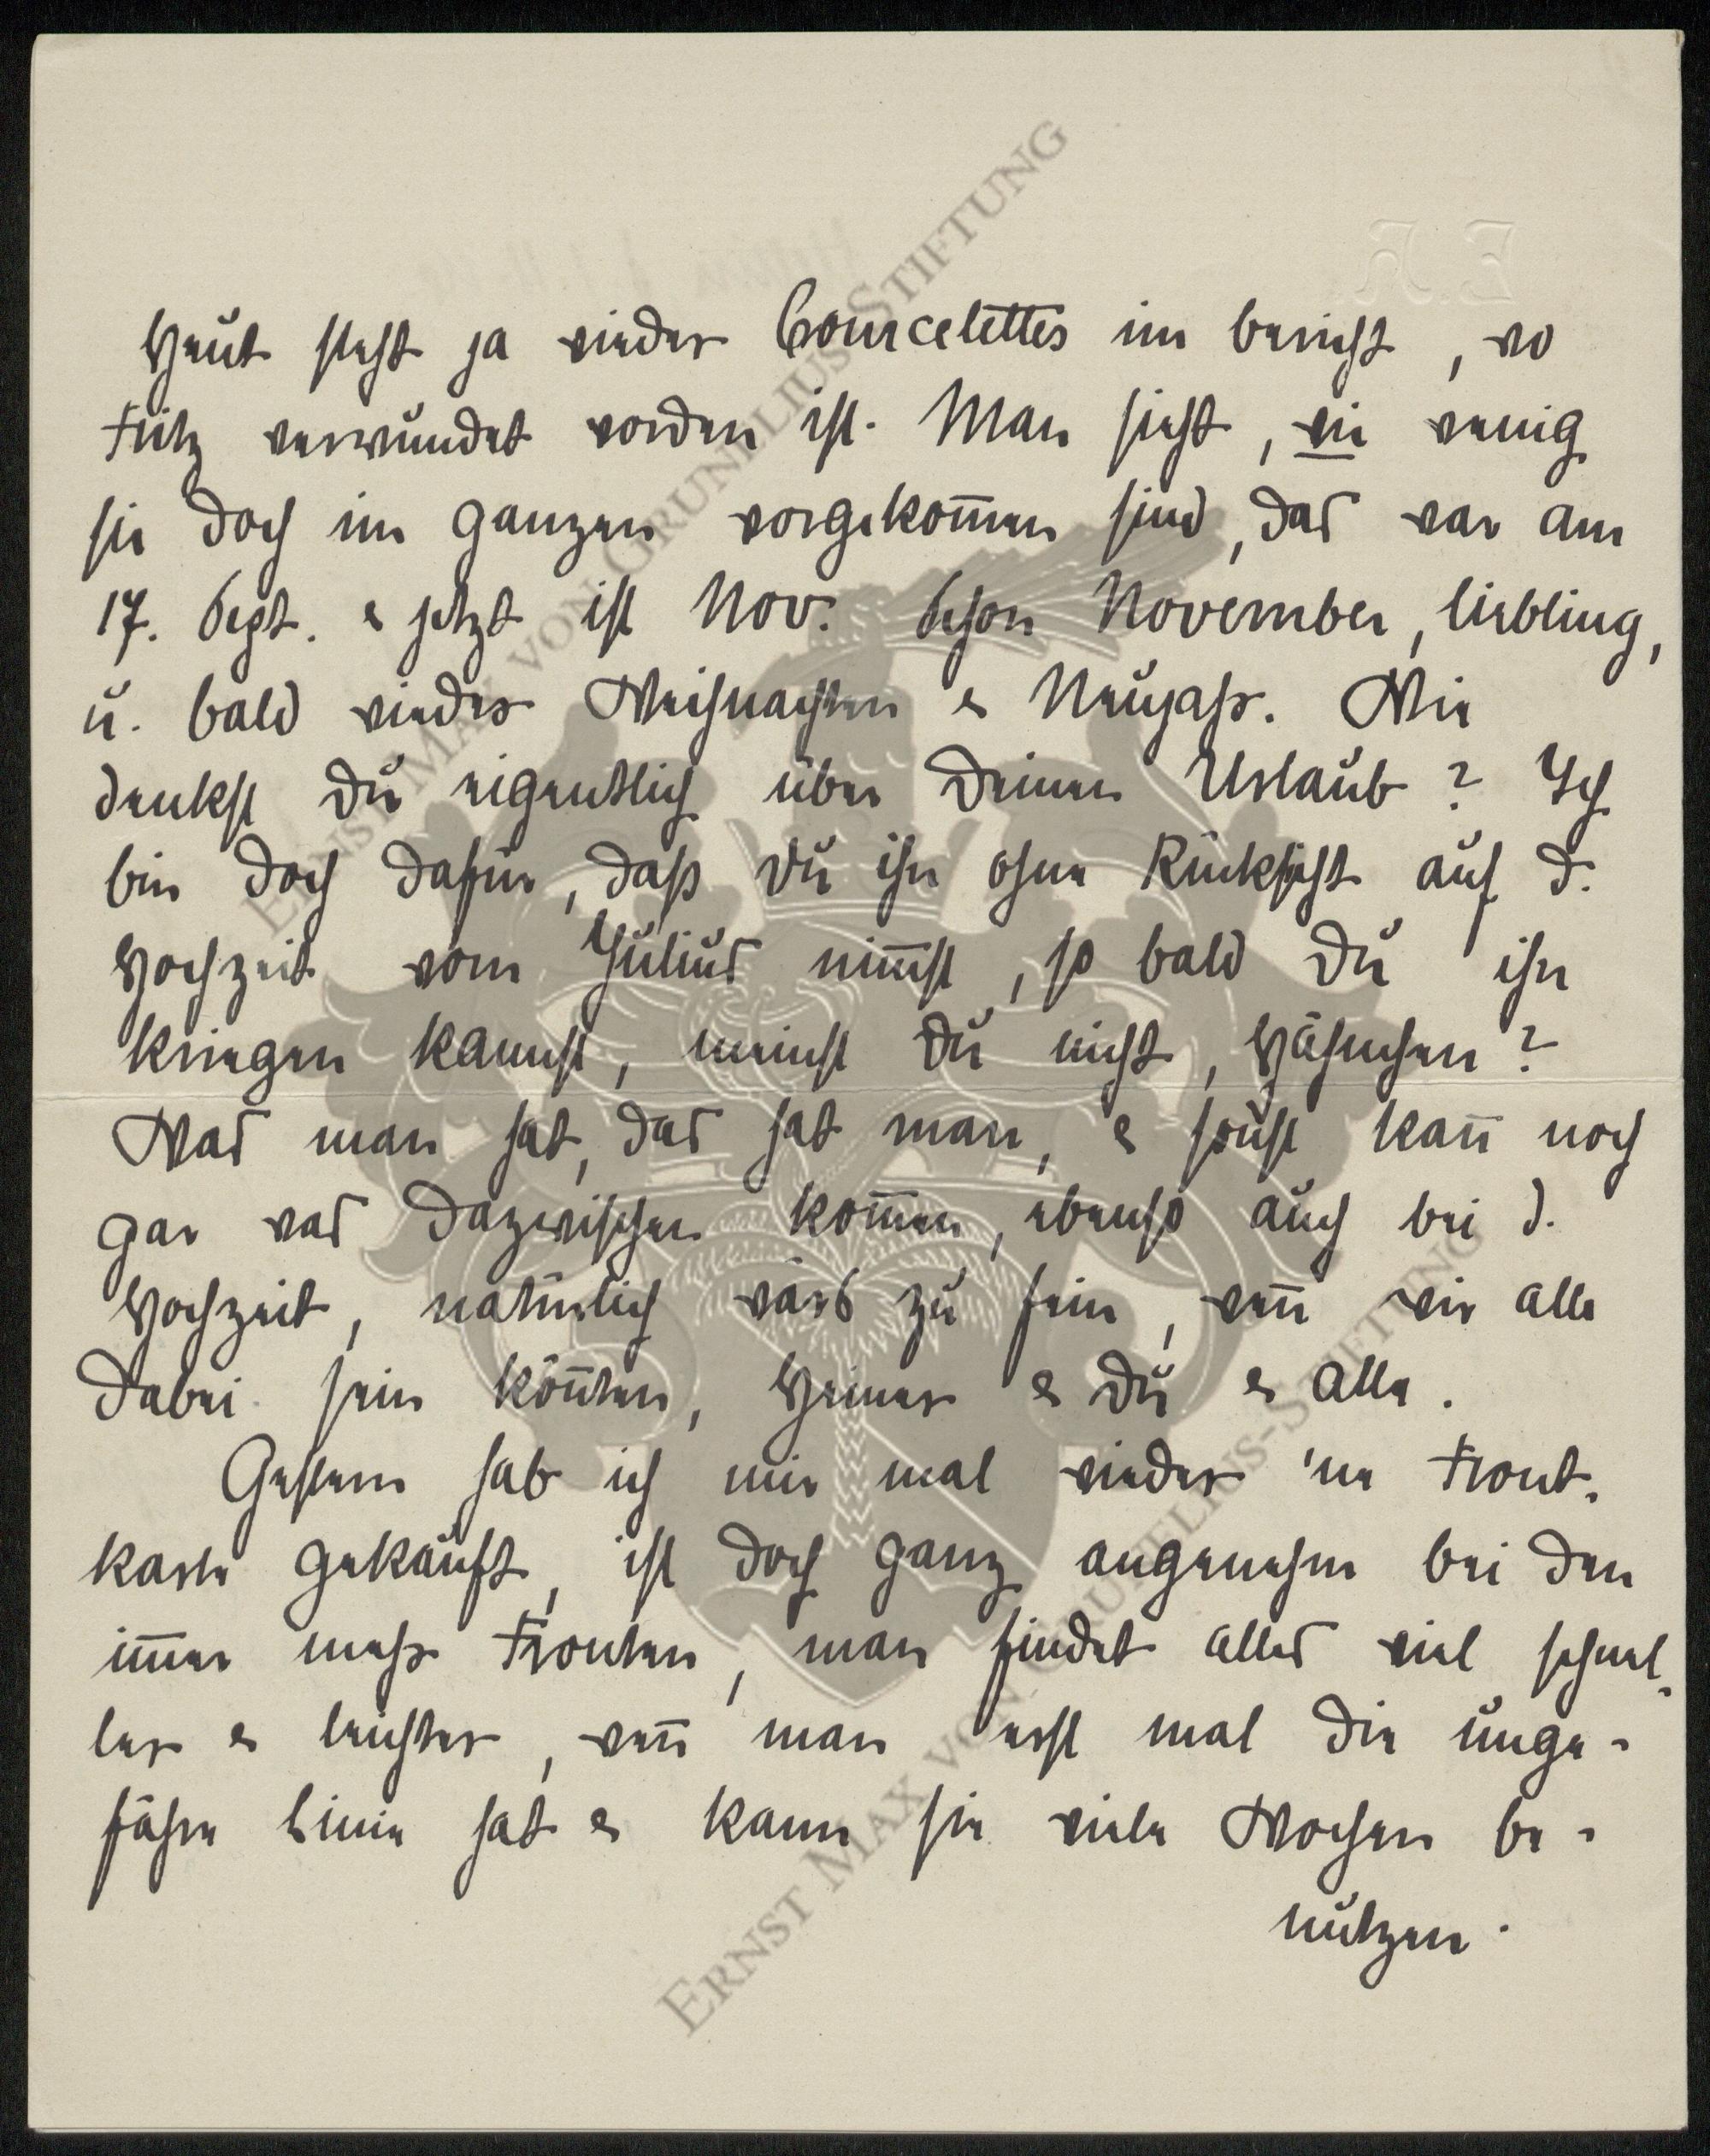 Heut steht ja wieder Courcelettes im Bericht, wo
Fritz verwundet worden ist. Man sieht, wie wenig
sie doch im Ganzen vorgekom̅en sind, das war am
17. Sept. & jetzt ist Nov. Schon November, Liebling,
u. bald wieder Weihnachten & Neujahr. Wie
denkst Du eigentlich über Deinen Urlaub? Ich
bin doch dafür, daß Du ihn ohne Rücksicht auf d.
Hochzeit vom Julius nim̅st, so bald Du ihn
kriegen kannst, meinst Du nicht, Häschen?
Was man hat, das hat man, & sonst kan̅ noch
gar was dazwischen kom̅en, ebenso auch bei d.
Hochzeit, natürlich wärs zu fein, wen̅ wir alle
dabei sein kön̅ten, Heiner & Du & alle.
Gestern hab ich mir mal wieder 'ne Front-
karte gekauft, ist doch ganz angenehm bei den
im̅er mehr Fronten, man findet alles viel schnel-
ler & leichter, wen̅ man erst mal die unge-
fähre Linie hat & kann sie viele Wochen be-
nützen.
E. J.
ERNST MAX VON GRUNELIUS-STIFTUNG
ERNST MAX VON GRUNELIUS-STIFTUNG